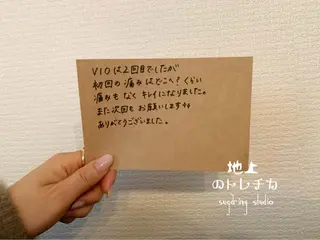 VIOは2回目でしたが
初回の痛みはどこへ?くらい
痛みもなくキレイになりました。
また次回もお願いします
ありがとうございました。
地上
のトレチカ
sugaring studio